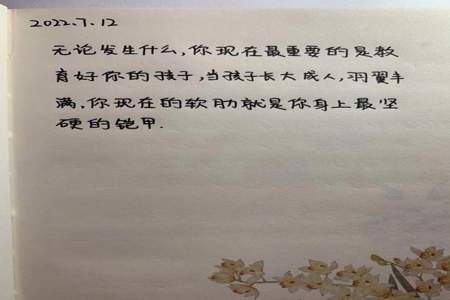 2022.7.12
无论发生什么,你现在最重要的是教
育好你的孩子,当孩子长大成人,羽翼丰
满,你现在的软肋就是你身上最坚
硬的铠甲.